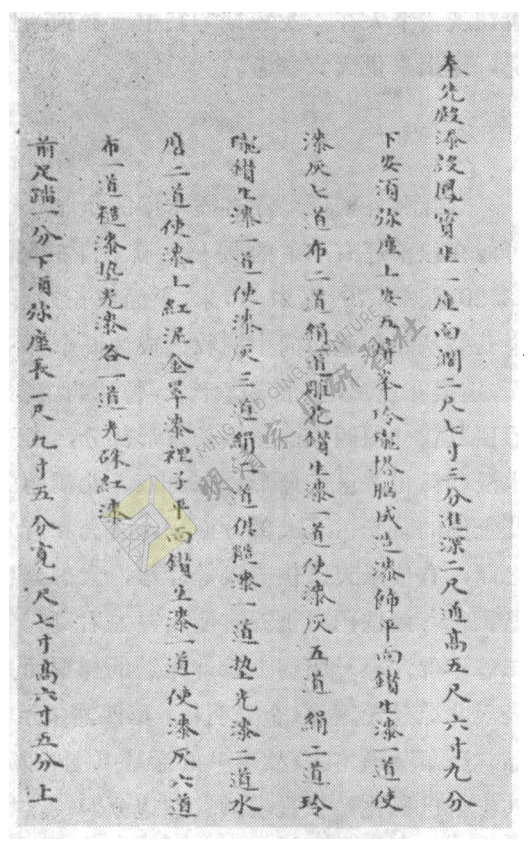 奉先殿添設鳳寶座一座面濶二尺七寸三分進深二尺通高五尺六寸九分
下安湏弥座上安五屏峯玲瓏搭腦成造漆飾平面鑚生漆一道使
漆灰七道布二道絹一道雕花鑚生漆一道使漆灰五道絹二道玲
瓏鑚生漆一道使漆灰三道絹一道俱糙漆一道墊光漆二道水
磨二道使漆上紅泥金罩漆裡子平面鑚生漆一道使漆灰六道
布一道糙漆墊光漆各一道光硃紅漆
前足踏一分下湏弥座長一尺九寸五分寬一尺七寸高六寸五分上
MING AND QING FURNITURE
明清家具研習社